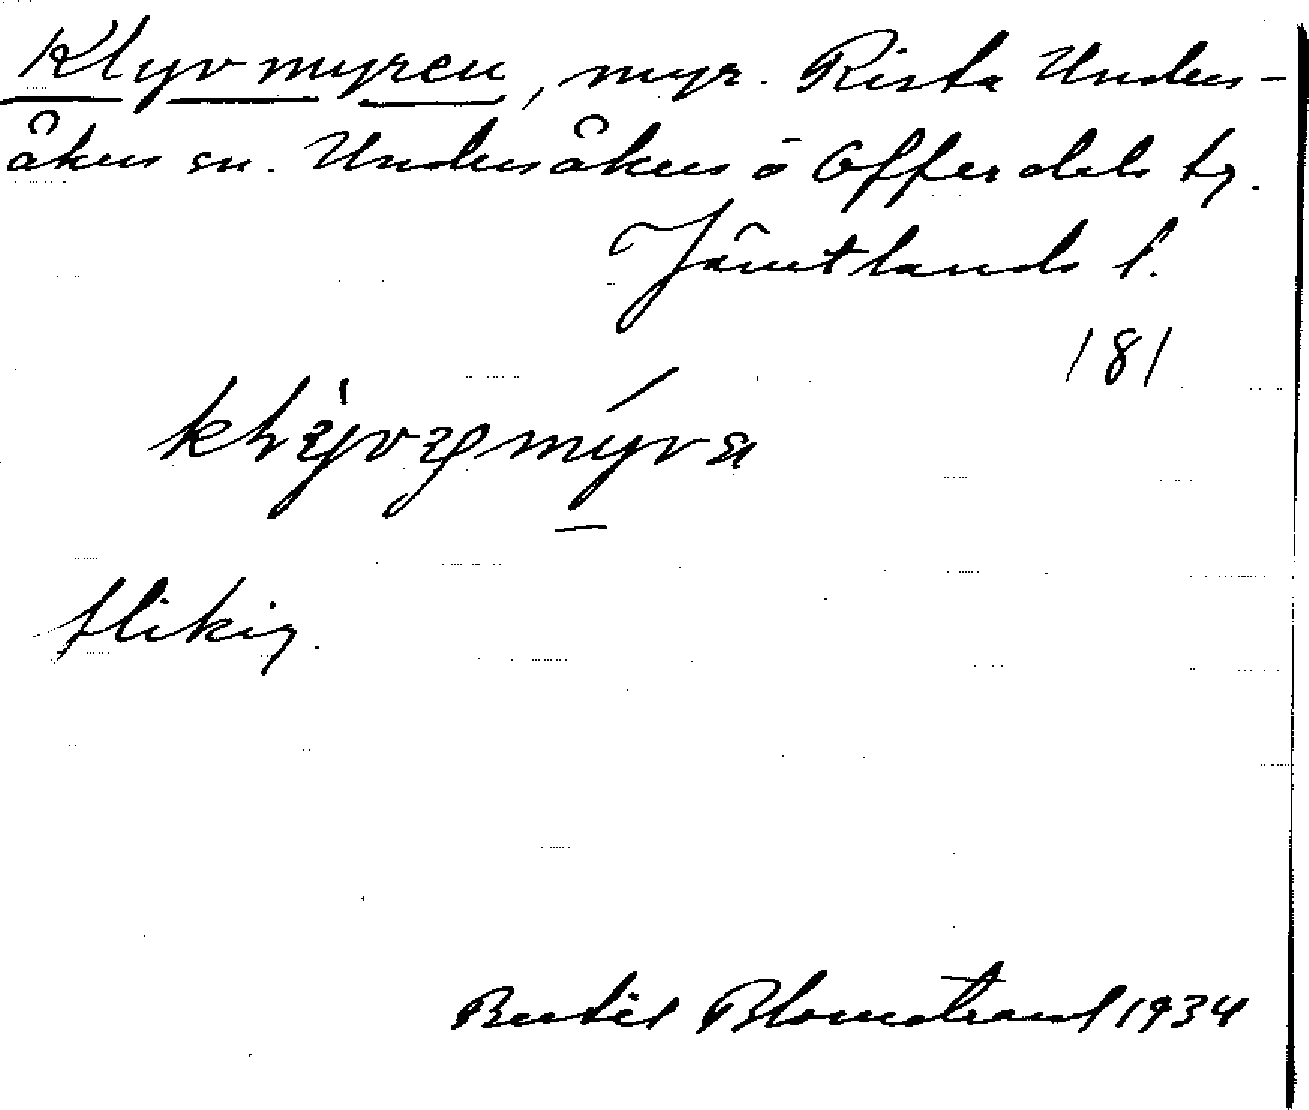 Klyvmyren, myr. Rista Unders-
åkers sn. Undersåkers o Offerdals tg.
Jämtlands l.
181
flikig.
Bertil Blomstrand 1934